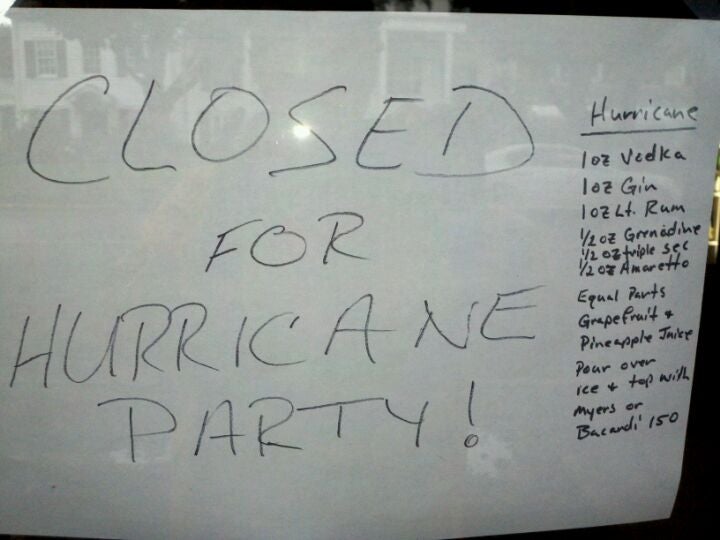 CLOSED
FOR
HURRICANE
PARTY!
Hurricane
1oz Vodka
1oz Gin
1oz Lt. Rum
1/2oz Grenadine
1/2oz triple sec
1/2oz Amaretto
Equal Parts
Grapefruit &
Pineapple Juice
Pour over
ice & top with
Myers or
Bacardi 150